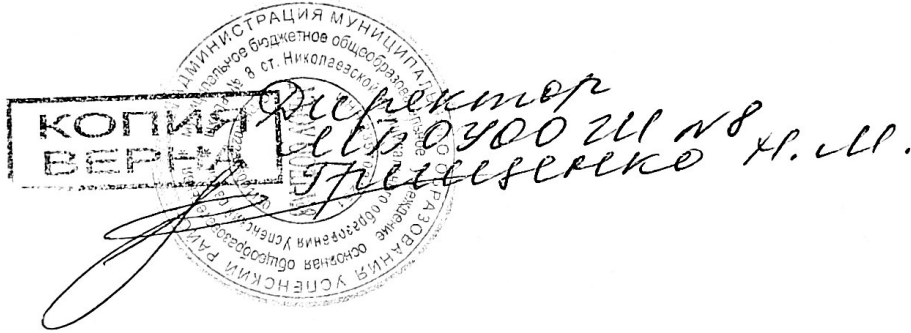 КОПИЯ
ВЕРНА
Директор
МБОУООШ №8
Грищенко Н.М.
АДМИНИСТРАЦИЯ МУНИЦИПАЛЬНОГО ОБРАЗОВАНИЯ УСПЕНСКИЙ РАЙОН
муниципальное бюджетное общеобразовательное учреждение основная общеобразовательная
№ 8 ст. Николаевской муниципального образования Успенский